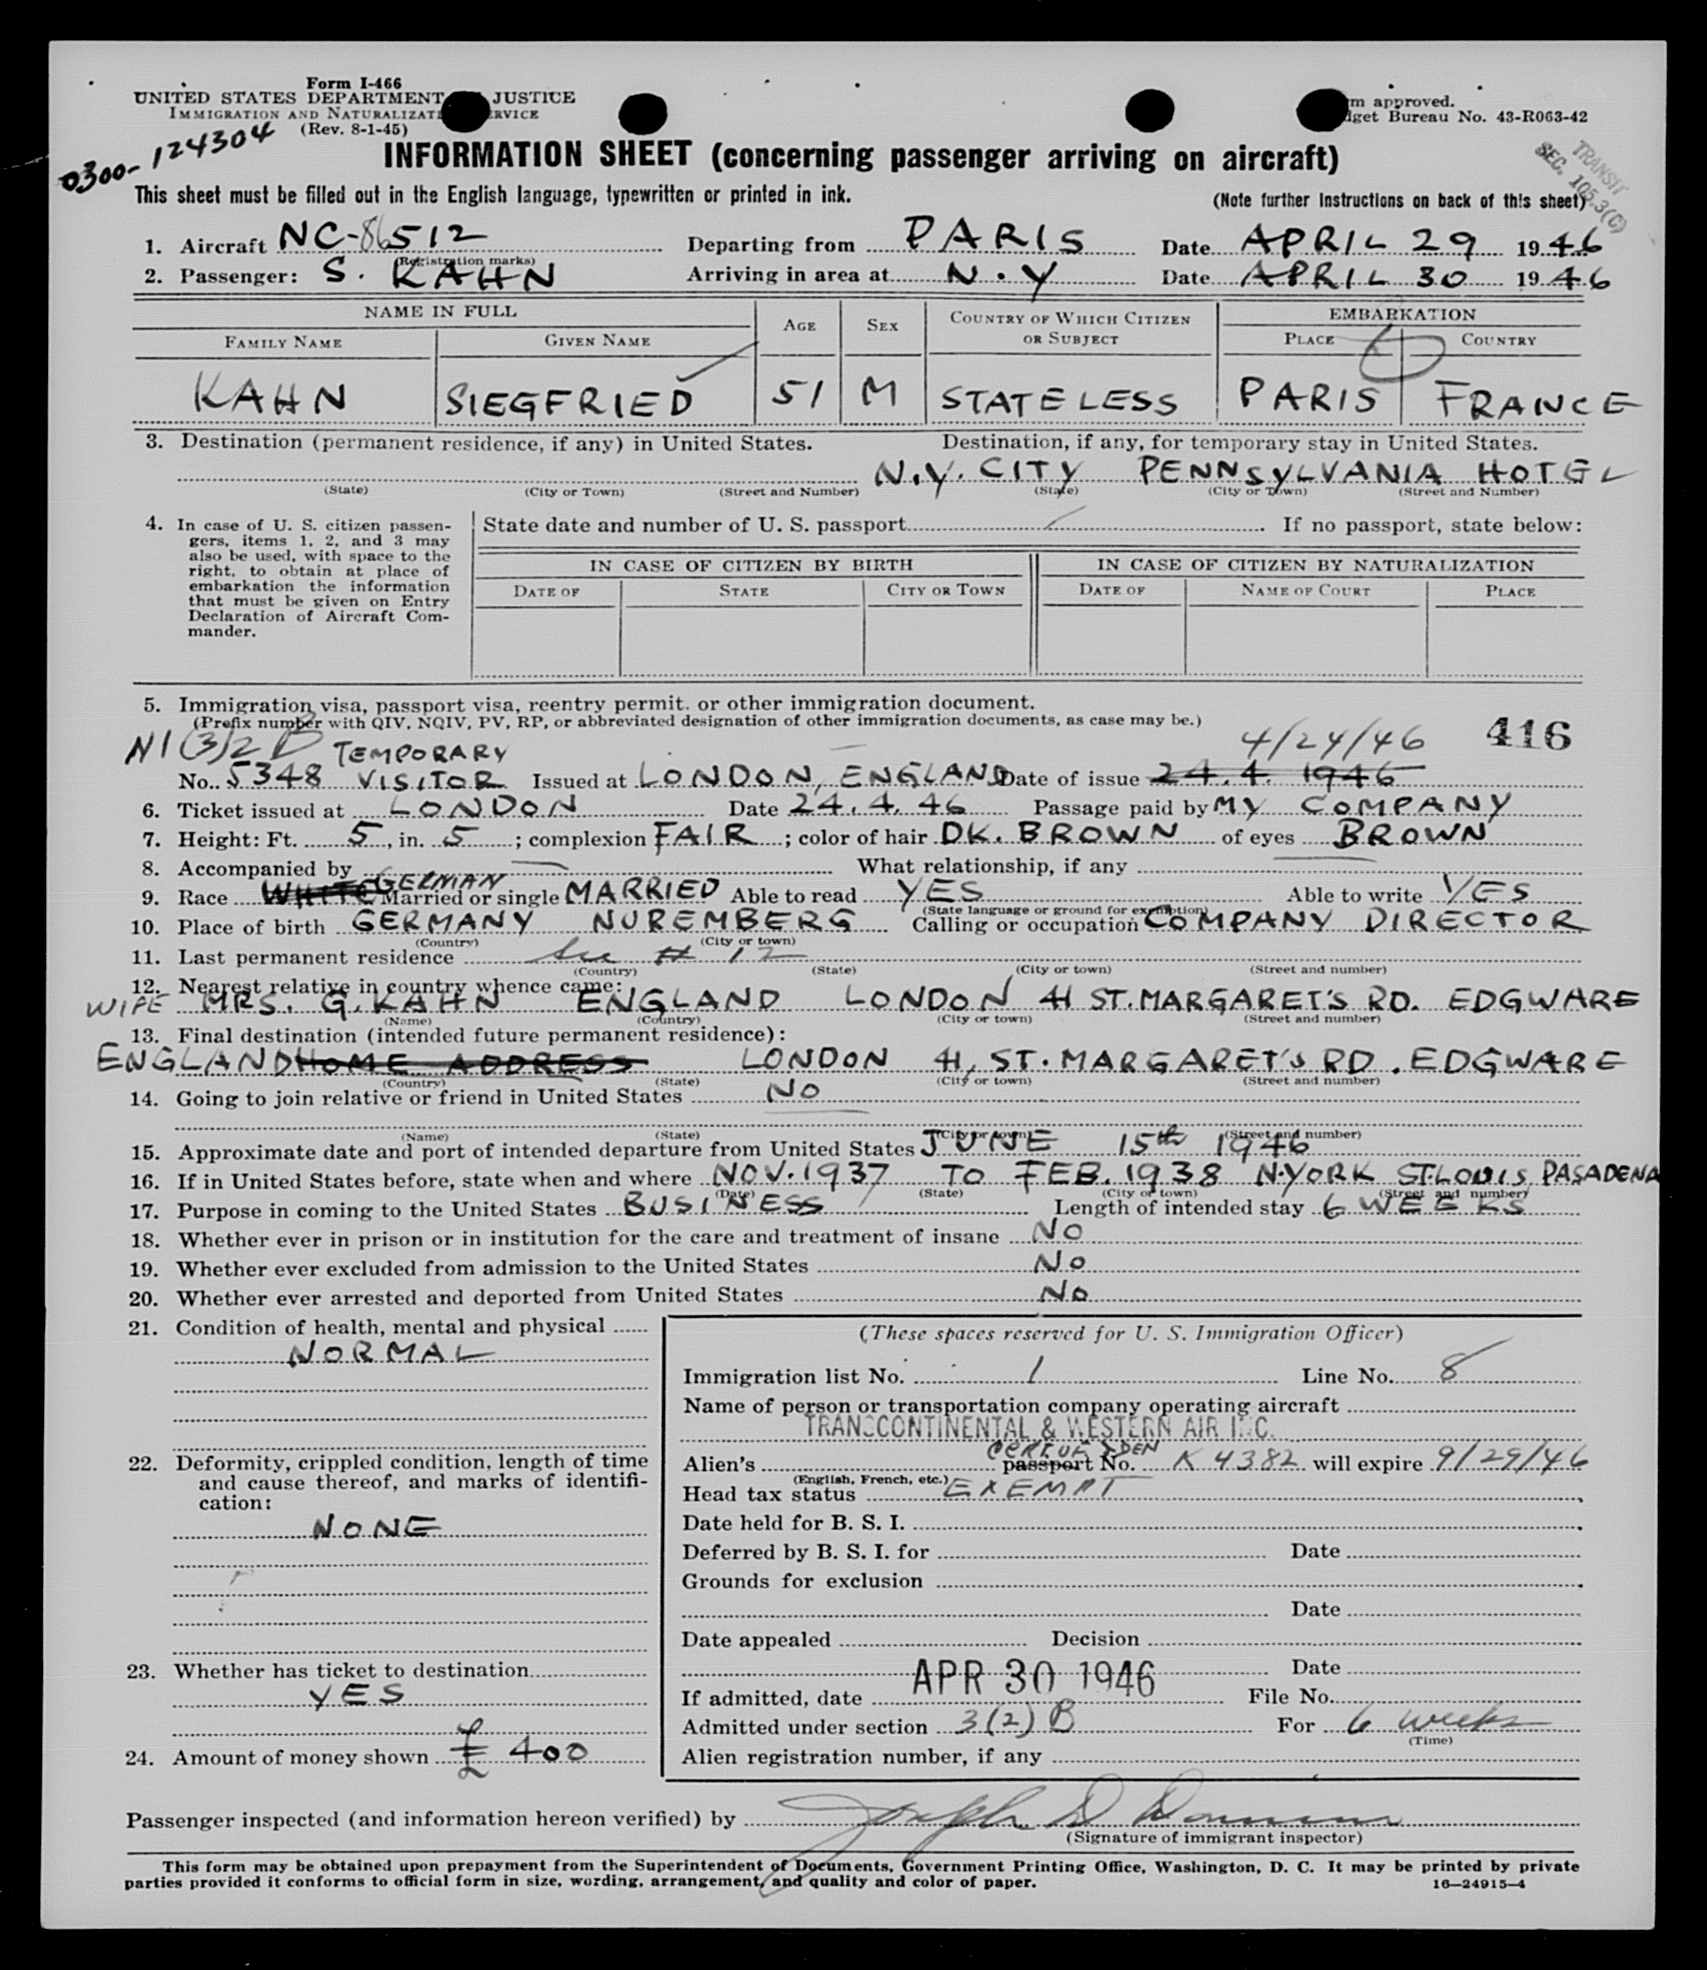 Form I-466
UNITED STATES DEPARTMENT JUSTICE
IMMIGRATION AND NATURALIZAT RVICE
(Rev. 8-1-45)
m approved.
get Bureau No. 43-R063-42
0300-124304
TRANSIT
SEC. 105.3(C)
INFORMATION SHEET (concerning passenger arriving on aircraft)
This sheet must be filled out in the English language, typewritten or printed in ink.
(Note further instructions on back of this sheet)
1. Aircraft NC-86512 Departing from PARIS Date APRIL 29 1946
(Registration marks)
2. Passenger: S. KAHN Arriving in area at N.Y Date APRIL 30 1946
NAME IN FULL AGE SEX COUNTRY OF WHICH CITIZEN OR SUBJECT EMBARKATION
FAMILY NAME GIVEN NAME PLACE COUNTRY
KAHN SIEGFRIED 51 M STATELESS PARIS FRANCE
3. Destination (permanent residence, if any) in United States. Destination, if any, for temporary stay in United States.
N.Y. CITY PENNSYLVANIA HOTEL
(State) (City or Town) (Street and Number) (State) (City or Town) (Street and Number)
4. In case of U. S. citizen passengers, items 1, 2, and 3 may also be used, with space to the right, to obtain at place of embarkation the information that must be given on Entry Declaration of Aircraft Commander.
State date and number of U. S. passport If no passport, state below:
IN CASE OF CITIZEN BY BIRTH IN CASE OF CITIZEN BY NATURALIZATION
DATE OF STATE CITY OR TOWN DATE OF NAME OF COURT PLACE
5. Immigration visa, passport visa, reentry permit. or other immigration document.
(Prefix number with QIV, NQIV, PV, RP, or abbreviated designation of other immigration documents, as case may be.)
416
NI (3)2 B TEMPORARY 4/24/46
No. 5348 VISITOR Issued at LONDON, ENGLAND Date of issue 24.4.1946
6. Ticket issued at LONDON Date 24.4.46 Passage paid by MY COMPANY
7. Height: Ft. 5, in. 5; complexion FAIR; color of hair DK. BROWN of eyes BROWN
8. Accompanied by What relationship, if any
9. Race WHITE GERMAN Married or single MARRIED Able to read YES Able to write YES
(State language or ground for exemption)
10. Place of birth GERMANY NUREMBERG Calling or occupation COMPANY DIRECTOR
(Country) (City or town)
11. Last permanent residence See # 12
(Country) (State) (City or town) (Street and number)
12. Nearest relative in country whence came:
WIFE MRS. G. KAHN ENGLAND LONDON 41 ST. MARGARET'S RD. EDGWARE
(Name) (Country) (City or town) (Street and number)
13. Final destination (intended future permanent residence):
ENGLAND HOME ADDRESS LONDON 41, ST. MARGARET'S RD. EDGWARE
(Country) (State) (City or town) (Street and number)
14. Going to join relative or friend in United States NO
(Name) (State) (City or town) (Street and number)
15. Approximate date and port of intended departure from United States JUNE 15th 1946
16. If in United States before, state when and where NOV. 1937 TO FEB. 1938 N.YORK ST.LOUIS, PASADENA
(Date) (State) (City or town) (Street and number)
17. Purpose in coming to the United States BUSINESS Length of intended stay 6 WEEKS
18. Whether ever in prison or in institution for the care and treatment of insane NO
19. Whether ever excluded from admission to the United States NO
20. Whether ever arrested and deported from United States NO
21. Condition of health, mental and physical
NORMAL
22. Deformity, crippled condition, length of time and cause thereof, and marks of identification:
NONE
23. Whether has ticket to destination
YES
24. Amount of money shown £ 400
(These spaces reserved for U. S. Immigration Officer)
Immigration list No. 1 Line No. 8
Name of person or transportation company operating aircraft
TRANSCONTINENTAL & WESTERN AIR INC.
CERT. OF IDEN
Alien's passport No. K 4382 will expire 9/29/46
(English, French, etc.)
Head tax status EXEMPT
Date held for B. S. I.
Deferred by B. S. I. for Date
Grounds for exclusion
Date
Date appealed Decision
Date
If admitted, date APR 30 1946 File No.
Admitted under section 3(2) B For 6 weeks
(Time)
Alien registration number, if any
Passenger inspected (and information hereon verified) by Joseph D
(Signature of immigrant inspector)
This form may be obtained upon prepayment from the Superintendent of Documents, Government Printing Office, Washington, D. C. It may be printed by private
parties provided it conforms to official form in size, wording, arrangement, and quality and color of paper.
16—24915-4